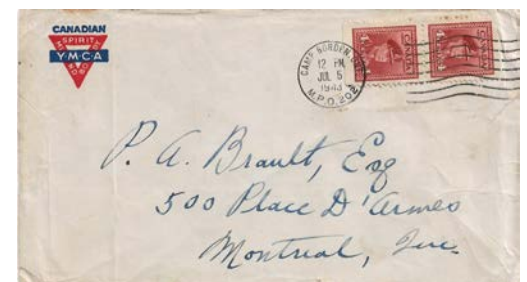 CANADIAN
SPIRIT
Y·M·C·A
CAMP BORDEN
12 PM
JUL 5
1943
M.P.O. 202
CANADA
CANADA
P. A. Brault, Esq
500 Place D'Armes
Montreal, Que.